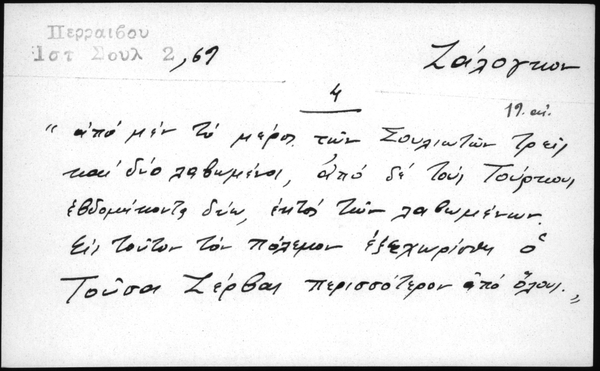 Περραιβου
Ιστ Σουλ 2,69
Ζάλογκον
4
19. αι.
"ἀπό μέν τό μέρος τῶν Σουλιωτῶν τρεῖς
καί δύο λαβωμένοι, ἀπό δέ τούς Τούρκους
ἑβδομήκοντα δύω, ἐκτός τῶν λαβωμένων.
Εἰς τοῦτον τόν πόλεμον ἐξεχώρισεν ὁ
Τοῦσας Ζέρβας περισσότερον ἀπό ὅλους."